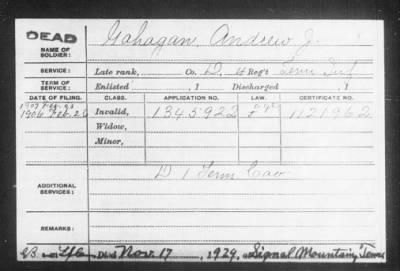 DEAD
NAME OF SOLDIER: Gahagan, Andrew J.
SERVICE: Late rank, Co. D, Reg't Tenn Inf
TERM OF SERVICE: Enlisted , 1 Discharged , 1
DATE OF FILING. CLASS. APPLICATION NO. LAW. CERTIFICATE NO.
1907 Feb.
1906 Feb. Invalid, 1343922 1121962
Widow,
Minor,
ADDITIONAL SERVICES: D 1 Tenn Cav
REMARKS:
Died Nov. 17, 1929, at Signal Mountain, Tenn